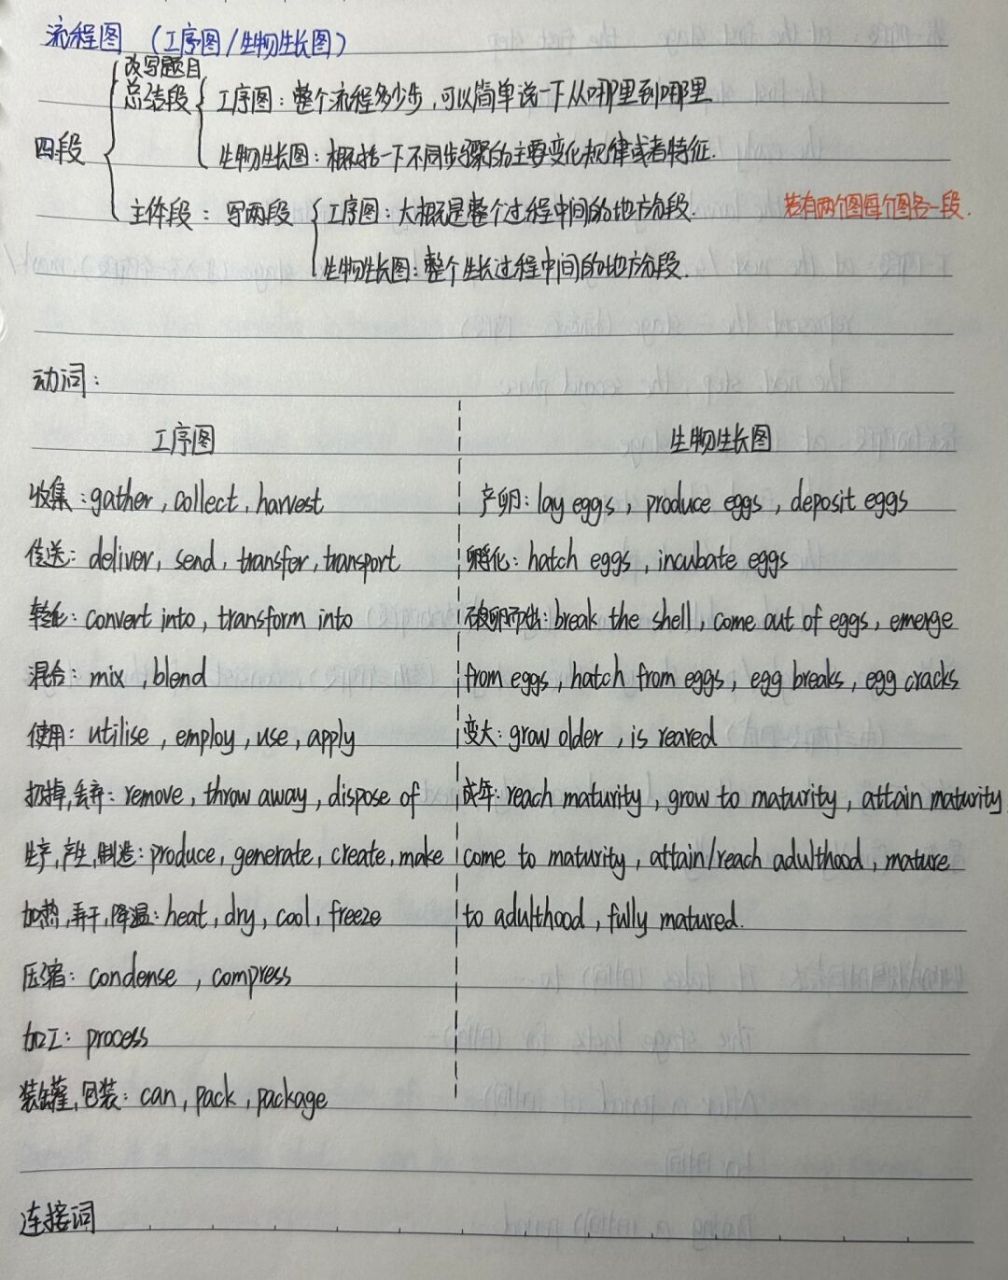 流程图 (工序图/生物生长图)
改写题目
总结段 工序图：整个流程多少步，可以简单说一下从哪里到哪里
四段
生物生长图：概括一下不同步骤的主要变化规律或者特征.
主体段：写两段 工序图：大概是整个过程中间的地方分段. 若有两个图每个图各一段.
生物生长图：整个生长过程中间的地方分段.
动词：
工序图 生物生长图
收集：gather, collect, harvest 产卵：lay eggs, produce eggs, deposit eggs
传送：deliver, send, transfer, transport 孵化：hatch eggs, incubate eggs
转化：convert into, transform into 破卵而出：break the shell, come out of eggs, emerge
混合：mix, blend from eggs, hatch from eggs, egg breaks, egg cracks
使用：utilise, employ, use, apply 变大：grow older, is reared
扔掉,丢弃：remove, throw away, dispose of 成年：reach maturity, grow to maturity, attain maturity
生产,产生,制造：produce, generate, create, make come to maturity, attain/reach adulthood, mature
加热,弄干,降温：heat, dry, cool, freeze to adulthood, fully matured.
压缩：condense, compress
加工：process
装罐,包装：can, pack, package
连接词